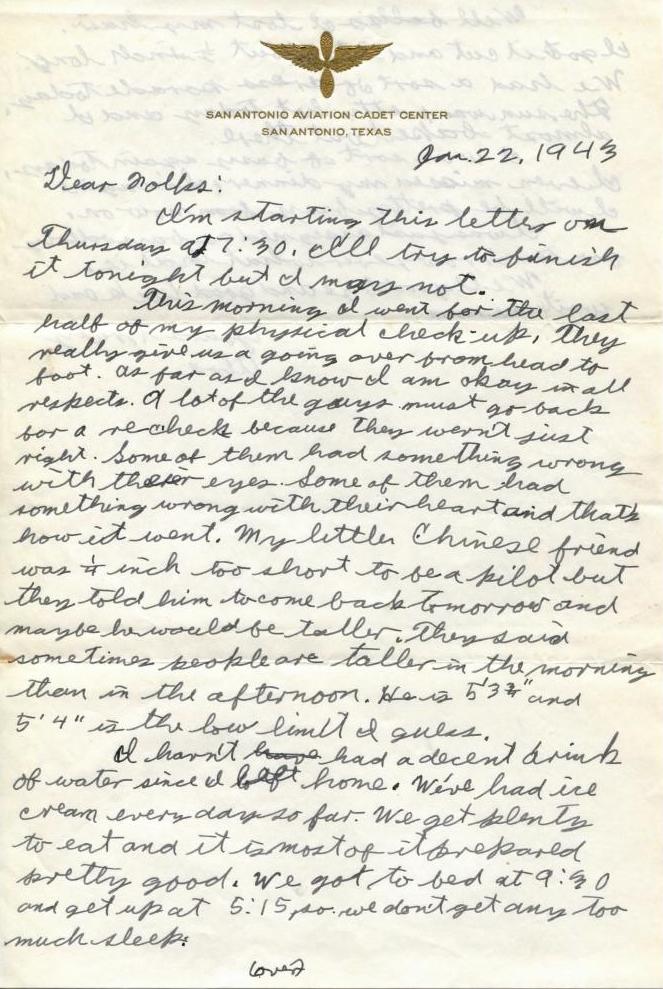 SAN ANTONIO AVIATION CADET CENTER
SAN ANTONIO, TEXAS
Jan. 22, 1943
Dear Folks:
I'm starting this letter on
Thursday at 7:30. I'll try to finish
it tonight but I may not.
This morning I went for the last
half of my physical check-up. They
really give us a going over from head to
foot. As far as I know I am okay in all
respects. A lot of the guys must go back
for a re-check because they wern't just
right. Some of them had something wrong
with their eyes. Some of them had
something wrong with their heart and that's
how it went. My little Chinese friend
was 1/4 inch too short to be a pilot but
they told him to come back tomorrow and
maybe he would be taller. They said
sometimes people are taller in the morning
than in the afternoon. He is 5'3 3/4" and
5'4" is the low limit I guess.
I havn't have had a decent drink
of water since I left home. We've had ice
cream every day so far. We get plenty
to eat and it is most of it prepared
pretty good. We got to bed at 9:30
and get up at 5:15, so we don't get any too
much sleep.
over